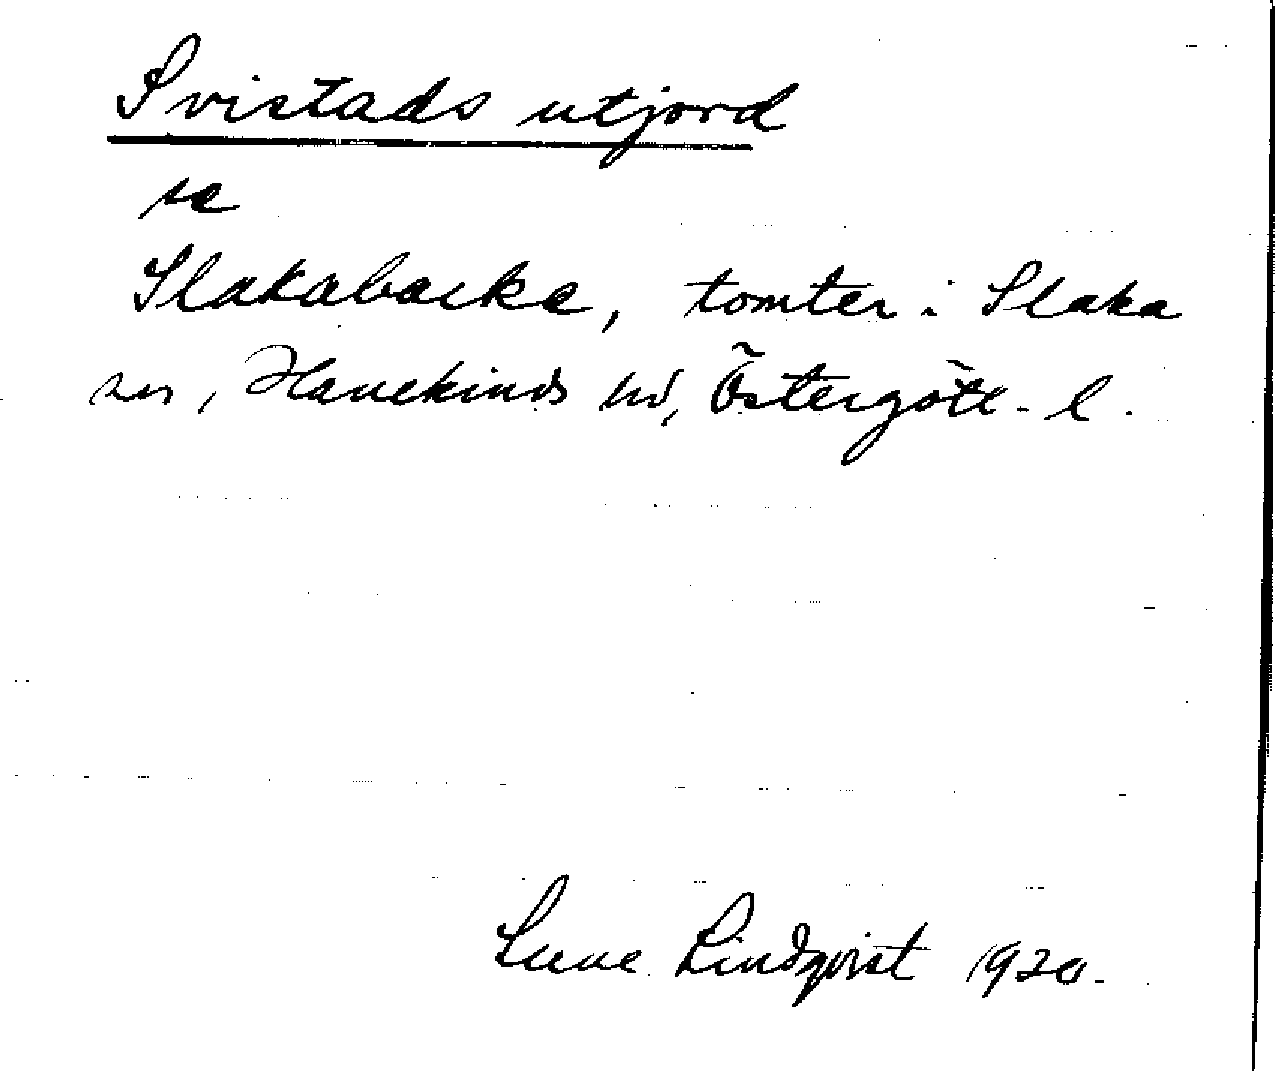 Svistads utjord
se
Slakabacke, tomter i Slaka
sn, Hanekinds hd, Östergötl. l.
Sune Lindqvist 1920.